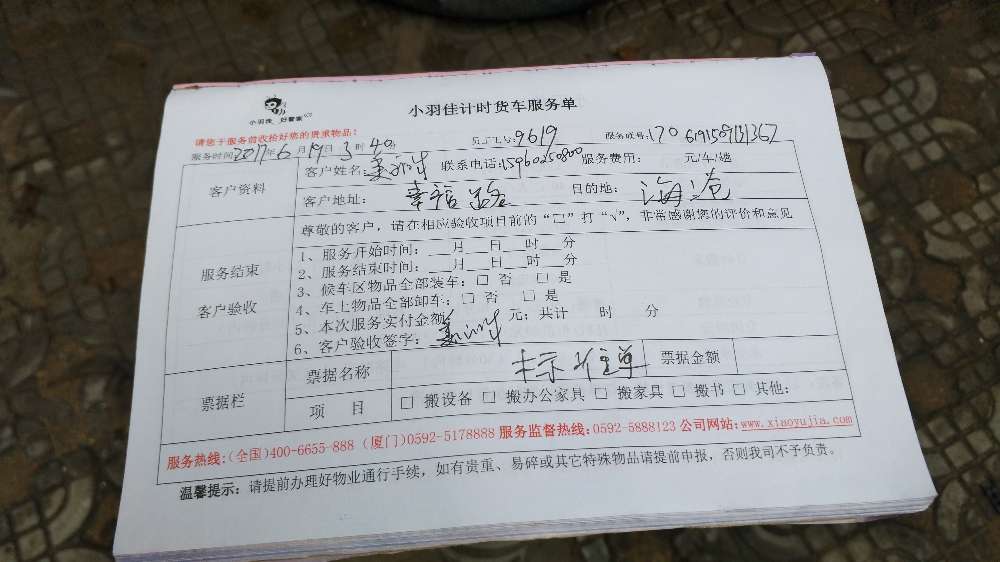 小羽佳 好管家
小羽佳计时货车服务单
请您于服务前收拾好您的贵重物品!
服务时间:2017年6月19日3时40分 员工工号:9619 服务帐号:170619159131362
客户资料 客户姓名: 联系电话:15960250800 服务费用: 元/车/趟
客户地址: 幸福路 目的地: 海沧
尊敬的客户,请在相应验收项目前的“□”打“√”,非常感谢您的评价和意见
服务结束
客户验收
1、服务开始时间:___月___日___时___分
2、服务结束时间:___月___日___时___分
3、候车区物品全部装车:□ 否 □ 是
4、车上物品全部卸车:□ 否 □ 是
5、本次服务实付金额 元;共计 时 分
6、客户验收签字:
票据栏 票据名称 票据金额
项 目 □ 搬设备 □ 搬办公家具 □ 搬家具 □ 搬书 □ 其他:
服务热线:(全国)400-6655-888 (厦门)0592-5178888 服务监督热线:0592-5888123 公司网站:www.xiaoyujia.com
温馨提示:请提前办理好物业通行手续,如有贵重、易碎或其它特殊物品请提前申报,否则我司不予负责。